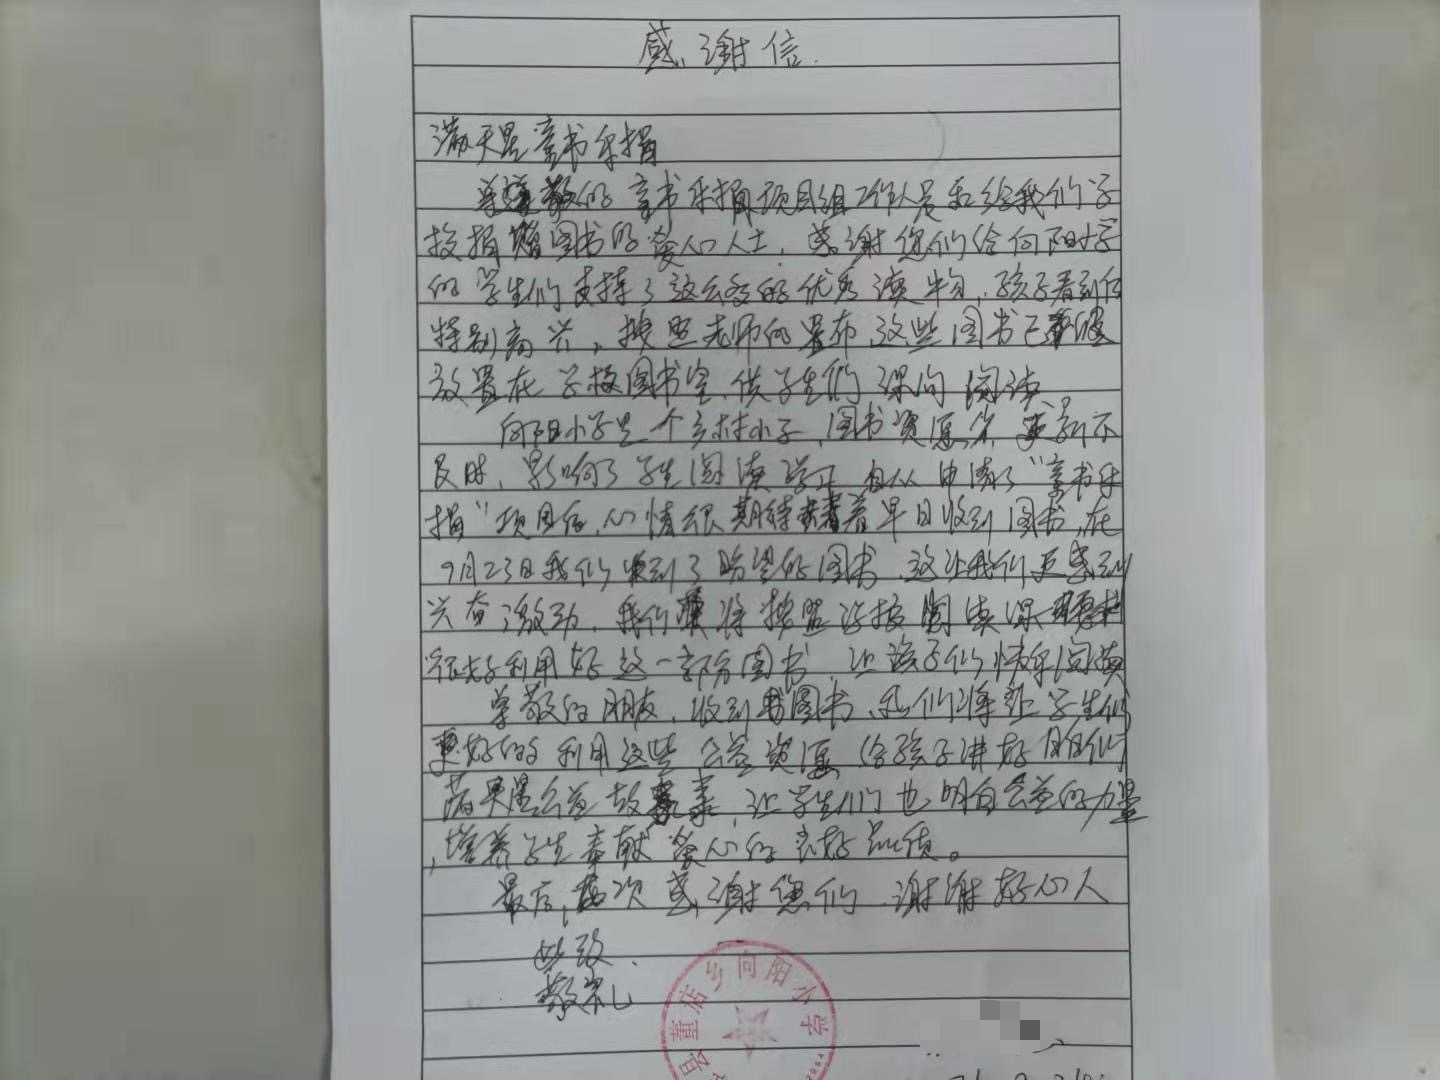 感谢信.
满天星童书乐捐
尊敬的童书乐捐项目组工作人员和给我们学
校捐赠图书的爱心人士，感谢您们给向阳小学
的学生们支持了这么多的优秀读物，孩子看到后
特别高兴，按照老师的署布，这些图书已被
放置在学校图书室，供学生们课间阅读
向阳小学是一个乡村小学，图书资源少，更新不
及时，影响了学生阅读学习，自从申请了“童书乐
捐”项目后，心情很期待着早日收到图书，在
9月23日我们收到了盼望的图书，这让我们更感到
兴奋激动，我们将按照学校阅读课
很好利用好这一部分图书，让孩子们快乐阅读
尊敬的朋友，收到图书，我们将让学生们
更好的利用这些公益资源，给孩子讲好咱们
满天星公益故事，让学生们也明白公益的力量
，培养学生奉献爱心的良好品质。
最后，再次感谢您们，谢谢好心人
此致.
敬礼
县董店乡向阳小学